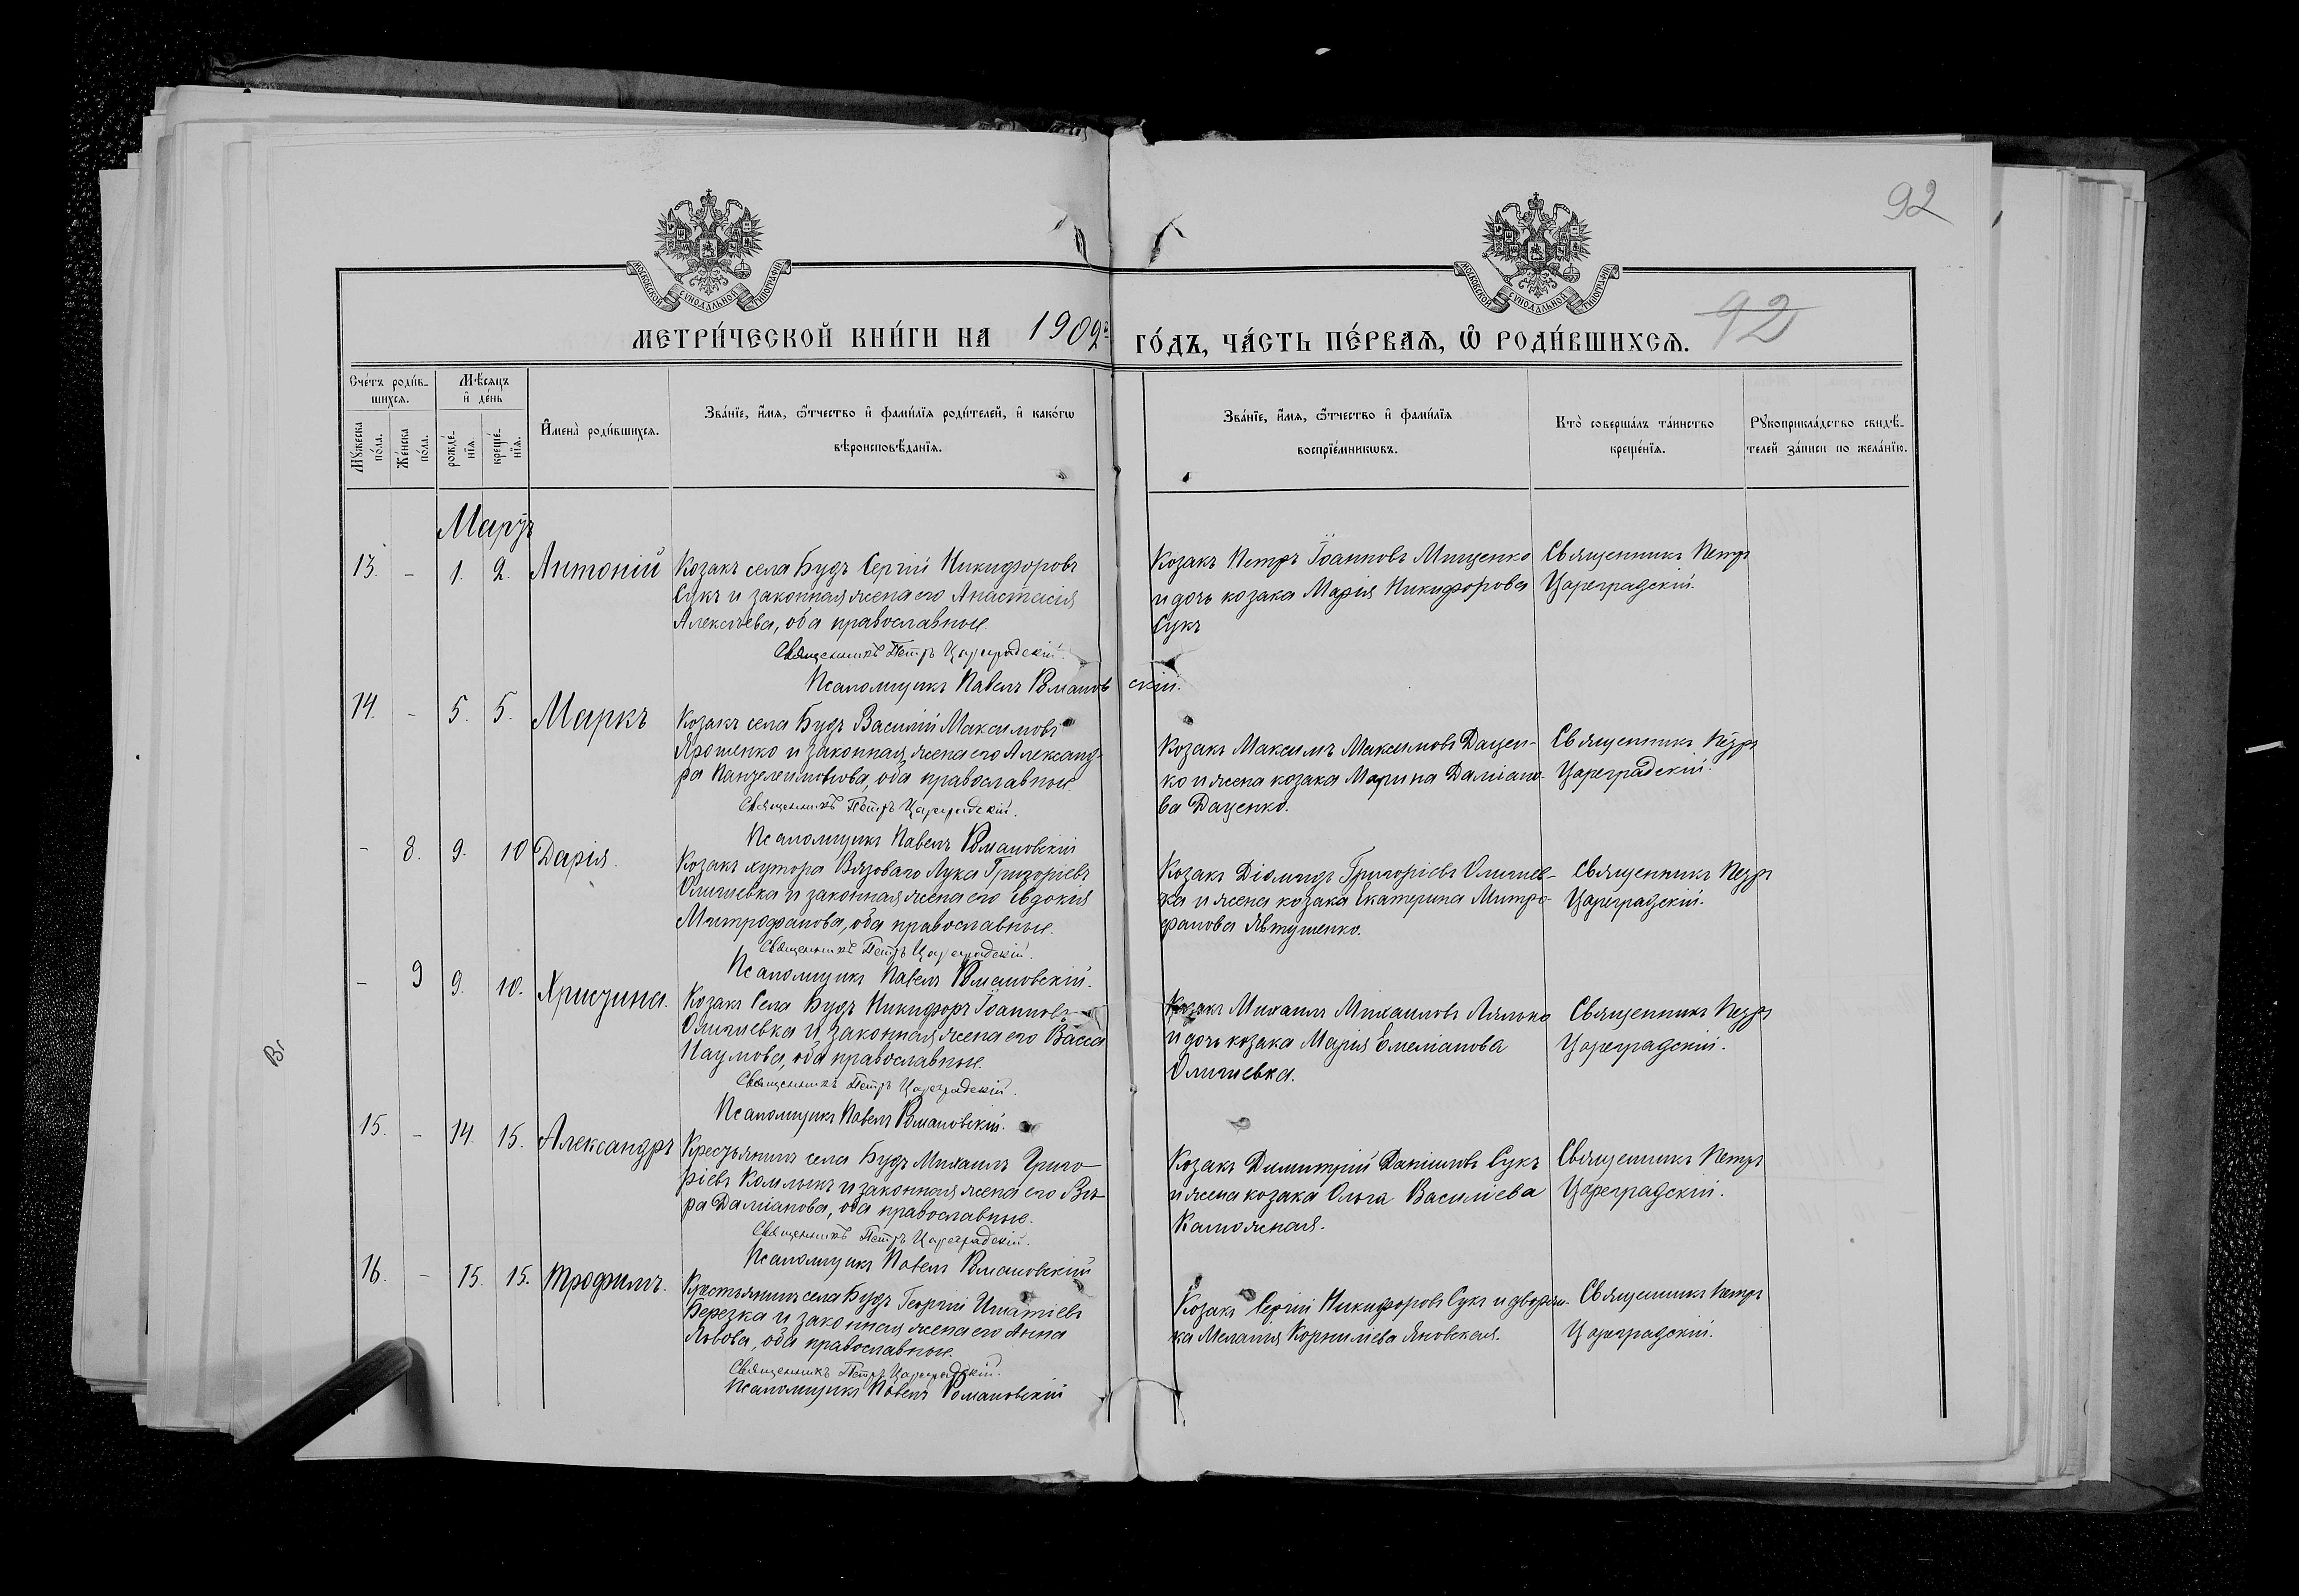 92
МОСКОВСКОЙ СѴНОДАЛЬНОЙ ТИПОГРАФІИ
МОСКОВСКОЙ СѴНОДАЛЬНОЙ ТИПОГРАФІИ
МЕТРИ́ЧЕСКОЙ КНИ́ГИ НА 1902й ГО́ДЪ, ЧА́СТЬ ПЕ́РВАѦ, Ѡ҆ РОДИ́ВШИХСѦ.
92
Сче́тъ роди́в-
шихсѧ.
Мѣ́сѧцъ
и҆ де́нь
Мꙋ́жеска
по́ла.
Же́нска
по́ла.
рожде́-
нїѧ.
креще́-
нїѧ.
И҆мена̀ роди́вшихсѧ.
Зва́нїе, и҆́мѧ, ѻ҆́тчество и҆ фами́лїѧ роди́телей, и҆ како́гѡ
вѣроисповѣ́данїѧ.
Зва́нїе, и҆́мѧ, ѻ҆́тчество и҆ фами́лїѧ
воспрїе́мникѡвъ.
Кто̀ соверша́лъ та́инство
креще́нїѧ.
Рꙋкоприкла́дство свидѣ́-
телей за́писи по жела́нїю.
Мартъ
13. - 1. 2. Антоній
Козакъ села Будъ Сергій Никифоровъ
Сукъ и законная жена его Анастасія
Алексѣева, оба православные.
Священникъ Петръ Цареградскій.
Псаломщикъ Павелъ Романовскій.
Козакъ Петръ Іоанновъ Мищенко
и дочь козака Марія Никифорова
Сукъ
Священникъ Петръ
Цареградскій.
14. - 5. 5. Маркъ
Козакъ села Будъ Василій Максимовъ
Ярошенко и законная жена его Александ-
ра Пантелеимонова, оба православные
Священникъ Петръ Цареградскій.
Псаломщикъ Павелъ Романовскій
Козакъ Максимъ Максимовъ Дацен-
ко и жена козака Марина Даміано-
ва Даценко.
Священникъ Петръ
Цареградскій.
- 8. 9. 10 Дарія.
Козакъ хутора Вязоваго Лука Григоріевъ
Олишевка и законная жена его Евдокія
Митрофанова, оба православные.
Священникъ Петръ Цареградскій.
Псаломщикъ Павелъ Романовскій.
Козакъ Діомидъ Григоріевъ Олишев-
ка и жена козака Екатерина Митро-
фанова Явтушенко.
Священникъ Петръ
Цареградскій.
- 9 9. 10. Христина.
Козакъ Села Будъ Никифоръ Іоанновъ
Олишевка и законная жена его Васса
Наумова, оба православные.
Священникъ Петръ Цареградскій.
Псаломщикъ Павелъ Романовскій.
Козакъ Михаилъ Михаиловъ Лялько
и дочь козака Марія Емеліанова
Олишевка.
Священникъ Петръ
Цареградскій.
15. - 14. 15. Александръ
Крестьянинъ села Будъ Михаилъ Григо-
ріевъ Комлыкъ и законная жена его Вѣ-
ра Даміанова, оба православные.
Священникъ Петръ Цареградскій.
Псаломщикъ Павелъ Романовскій
Козакъ Димитрій Даніиловъ Сукъ
и жена козака Ольга Василіева
Священникъ Петръ
Цареградскій.
16. - 15. 15. Трофимъ.
Крестьянинъ села Будъ Георгій Игнатіевъ
Березка и законная жена его Анна
Львова, оба православные.
Священникъ Петръ Цареградскій.
Псаломщикъ Павелъ Романовскій
Козакъ Сергій Никифоровъ Сукъ и дворян-
ка Меланія Корниліева Яновская.
Священникъ Петръ
Цареградскій.